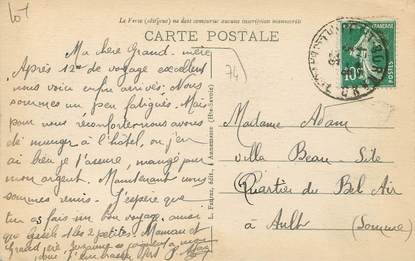 Le Verso (ci-dessous) ne doit comporter aucune inscription manuscrite
CARTE POSTALE
Ma chère Grand-mère
Après 12h de voyage excellent
nous voici enfin arrivés. Nous
sommes un peu fatigués. Mais
pour nous réconforter nous avons
dû manger à l'hôtel, où, j'en
ai bien je t'assure, mangé pour
mon argent. Maintenant nous
sommes remis. J'espère que
tu as fait un bon voyage, ainsi
que les 2 petites. Maman et
74
L. Fauraz, édit., à Annemasse (Hte-Savoie)
Madame Adam
villa Beau-Site
Quartier du Bel Air
à Ault (Somme)